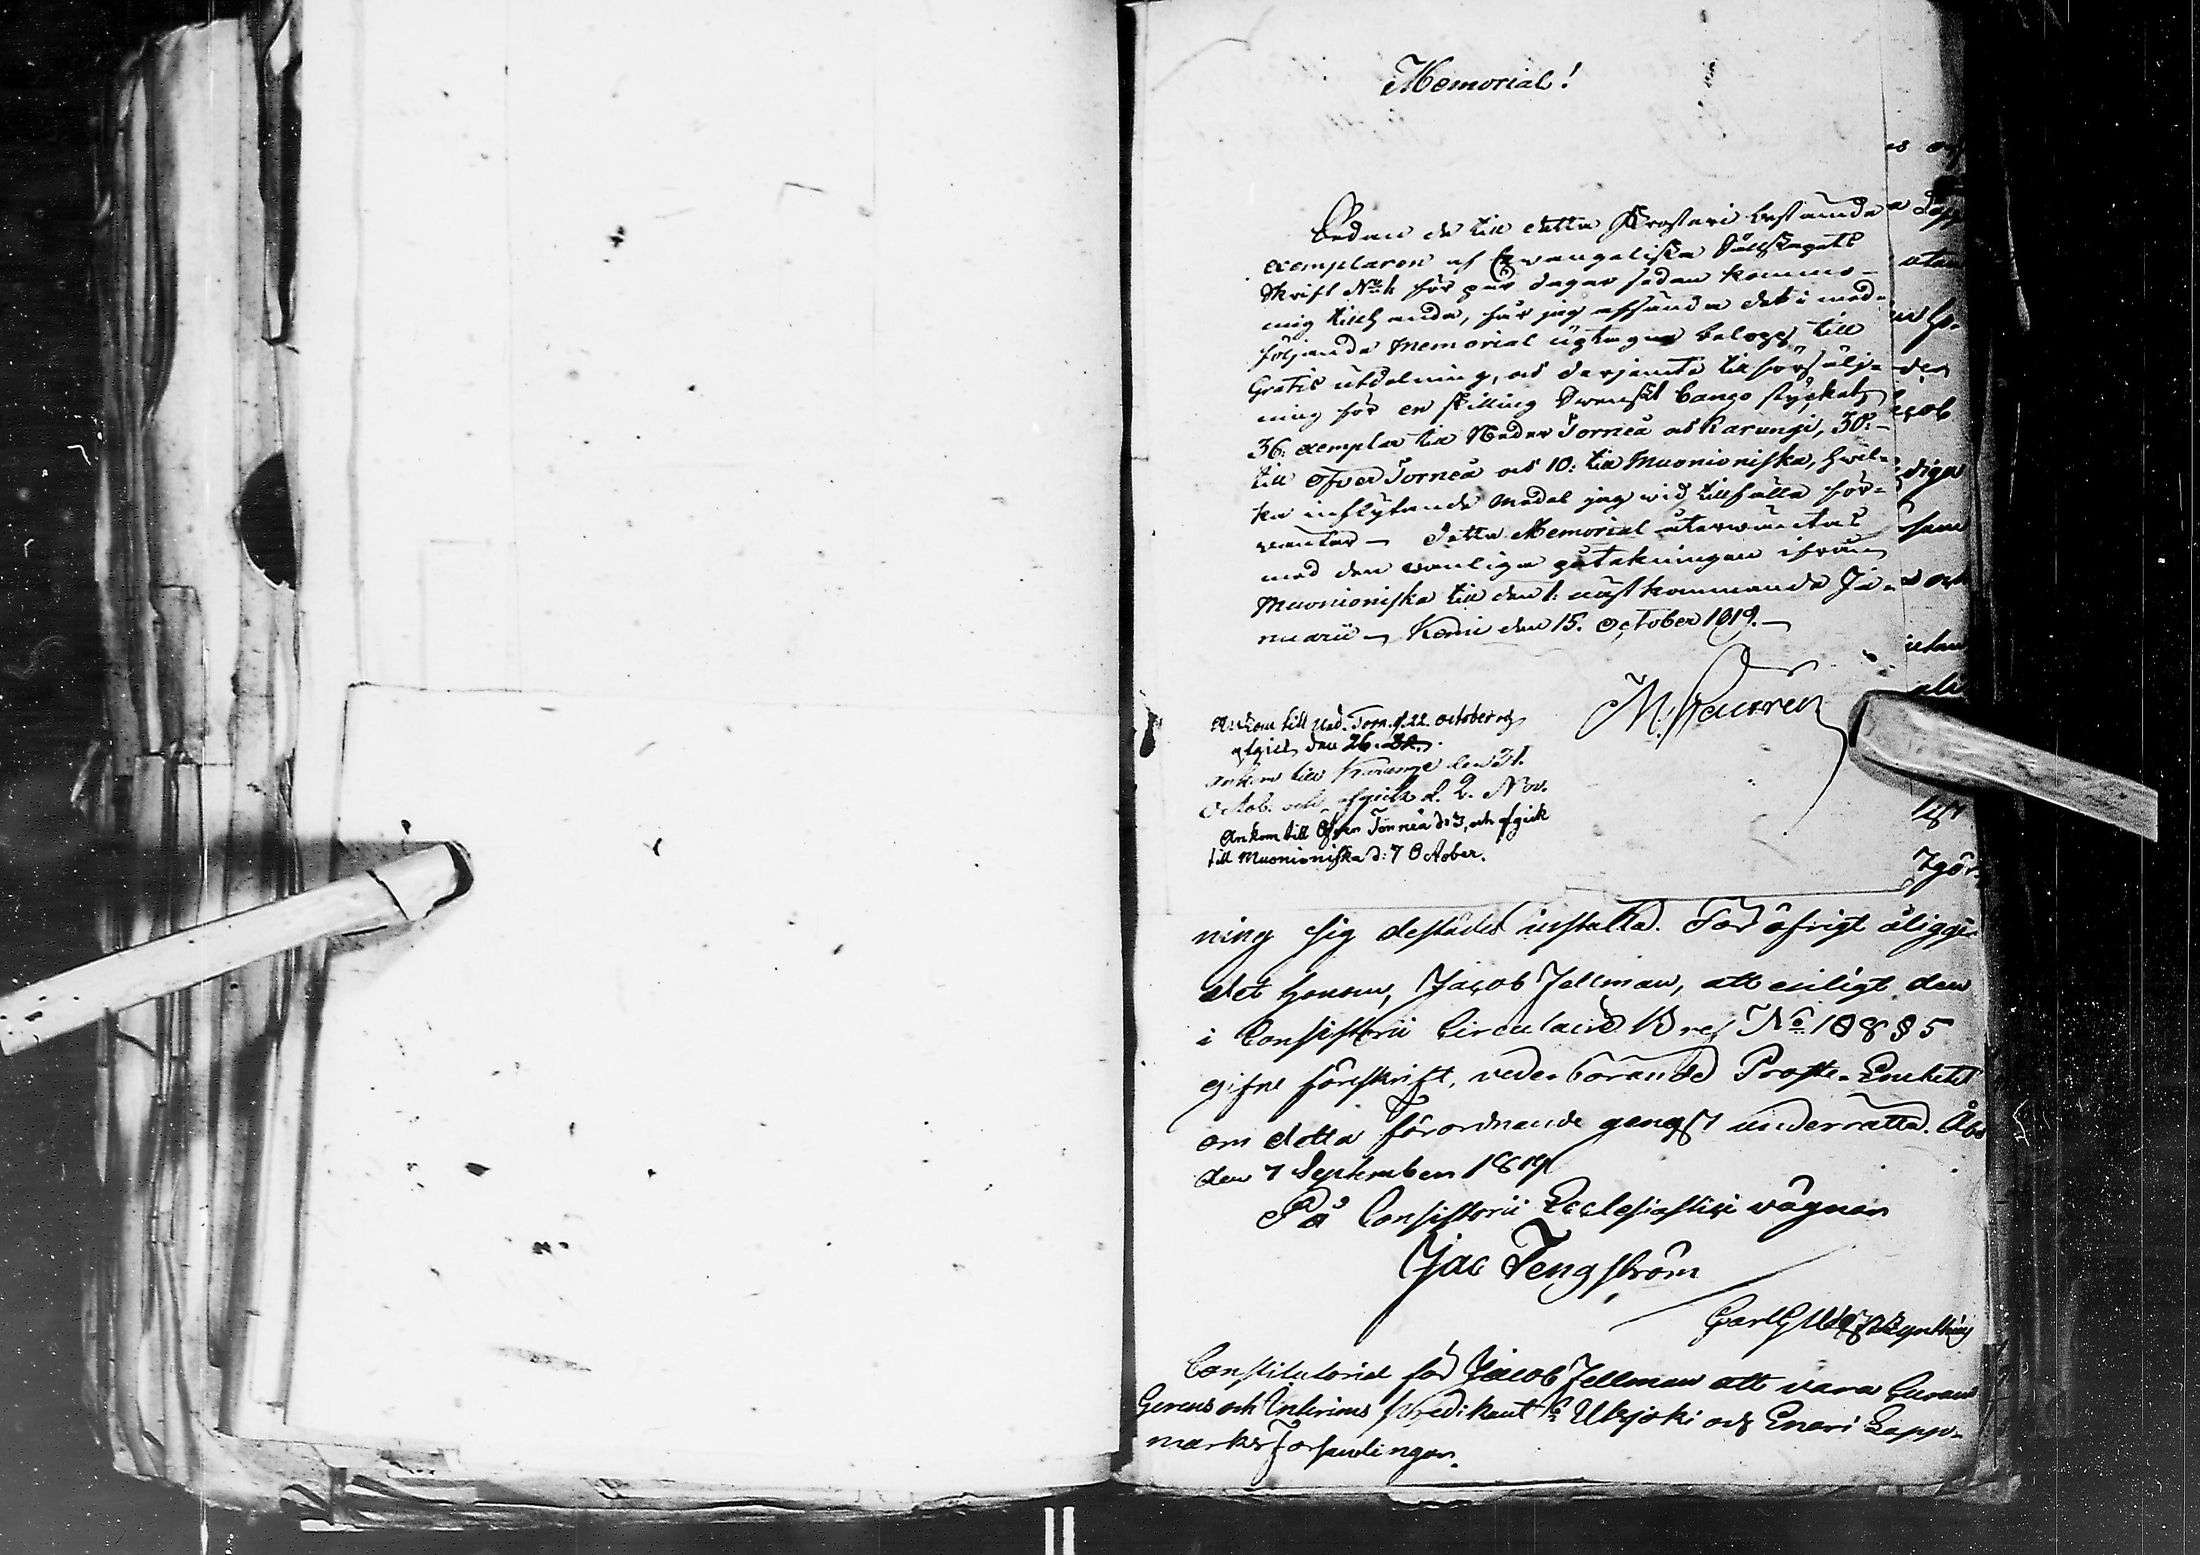 Memorial!
Sedan de till detta Prosteri bestämda
exemplaren af Evangeliska Sällskapets
Skrift för par dagar sedan kommo
mig tillhanda, får jag afsända det i med-
följande Memorial belopp till
Gratis utdelning, och derjemte till försälj-
ning för en skilling Svenskt banco stycket
36. exemplar till Neder Torneå och Karungi, 30:-
till Öfver Torneå och 10: till Muonioniska, hvil-
ka inflytande medel jag vid tillfälle för-
väntar — Detta Memorial återväntas
med den vanliga påtekningen ifrån
Muonioniska till den 1: nästkommande Ja-
nuarii — Kemi den 15. October 1819. —
Ankom till Ned. Torn. d. 22. october och
afgick den 26.
ankom till Karungi den 31.
Octob. och afgick d. 2. Nov.
Ankom till Öfver Torneå d: 3, och afgick
till Muonioniska d: 7 October.
ning sig destädes inställa. För öfrigt åligger
det honom, Jacob Fellman, att enligt den
i Consistorii Circulaire Bref No 108 § 5
gifne föreskrift, vederbörande Prosta-Embetet
om detta Förordnande genast underrätta. Åbo
den 7 September 1819
På Consistorii Ecclesiastici vägnar
Jac Tengström
Constitutorial för Jacob Fellman att vara Curam
Gerens och Interims predikant i Utsjoki och Enari Lapp-
marks Församlingar.